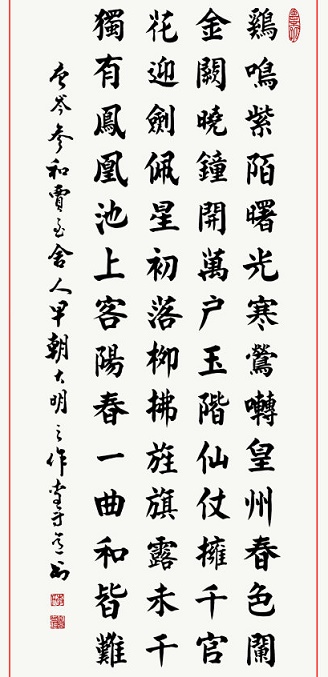 鷄鳴紫陌曙光寒鶯囀皇州春色闌
金闕曉鐘開萬户玉階仙仗擁千官
花迎劍佩星初落栁拂旌旗露未干
獨有鳳凰池上客陽春一曲和皆難
岑參和賈至舍人早朝大明之作